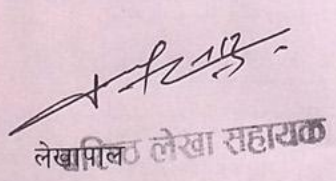 लेखापाल
वरिष्ठ लेखा सहायक